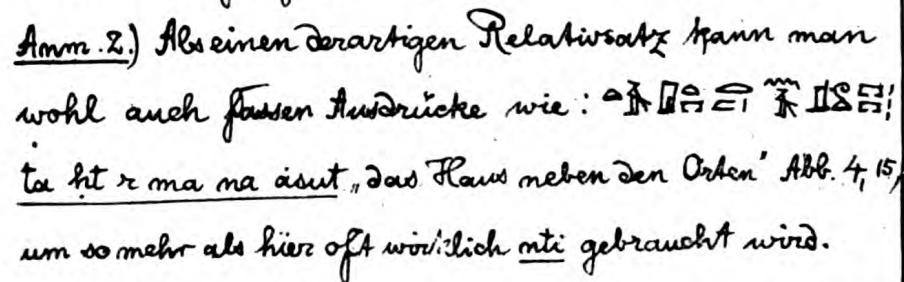 Anm. 2.) Als einen derartigen Relativsatz kann man
wohl auch fassen Ausdrücke wie:
ta ḥt r ma na ȧsut „das Haus neben den Orten“ Abb. 4, 15,
um so mehr als hier oft wirklich nti gebraucht wird.